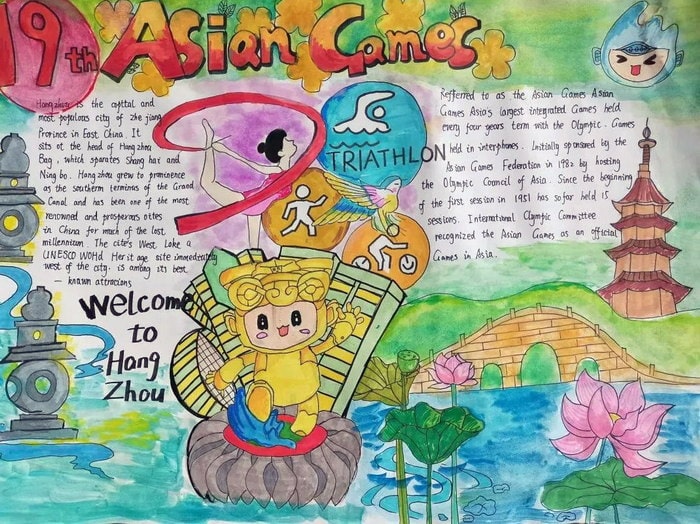 19th Asian Games
Hangzhou is the captital and
most populous city of zhe jiang
Province in East China. It
sits at the head of Hangzhou
Bag, which sparates Shang hai and
Ning bo. Hang zhou grew to prominence
as the southern terminus of the Grand
Canal and has been one of the most
renowned and prosperous cities
in China for much of the last
millennium. The citie's West, Lake a
UNESCO WOHd Herit age site immederately
west of the city. is among its best
- known attracions
Welcome
to
Hang
Zhou
TRIATHLON
Refferred to as the Asian Games Asian
Games Asia's largest integrated Games held
every four years term with the Olympic. Games
held in interphones. Initially sponsored by the
Asian Games Federation in 1982 by hosting
the Olympic Council of Asia. Since the beginning
of the first session in 1951 has so far held 15
sessions. International Olympic Committee
recognized the Asian Games as an official
Games in Asia.